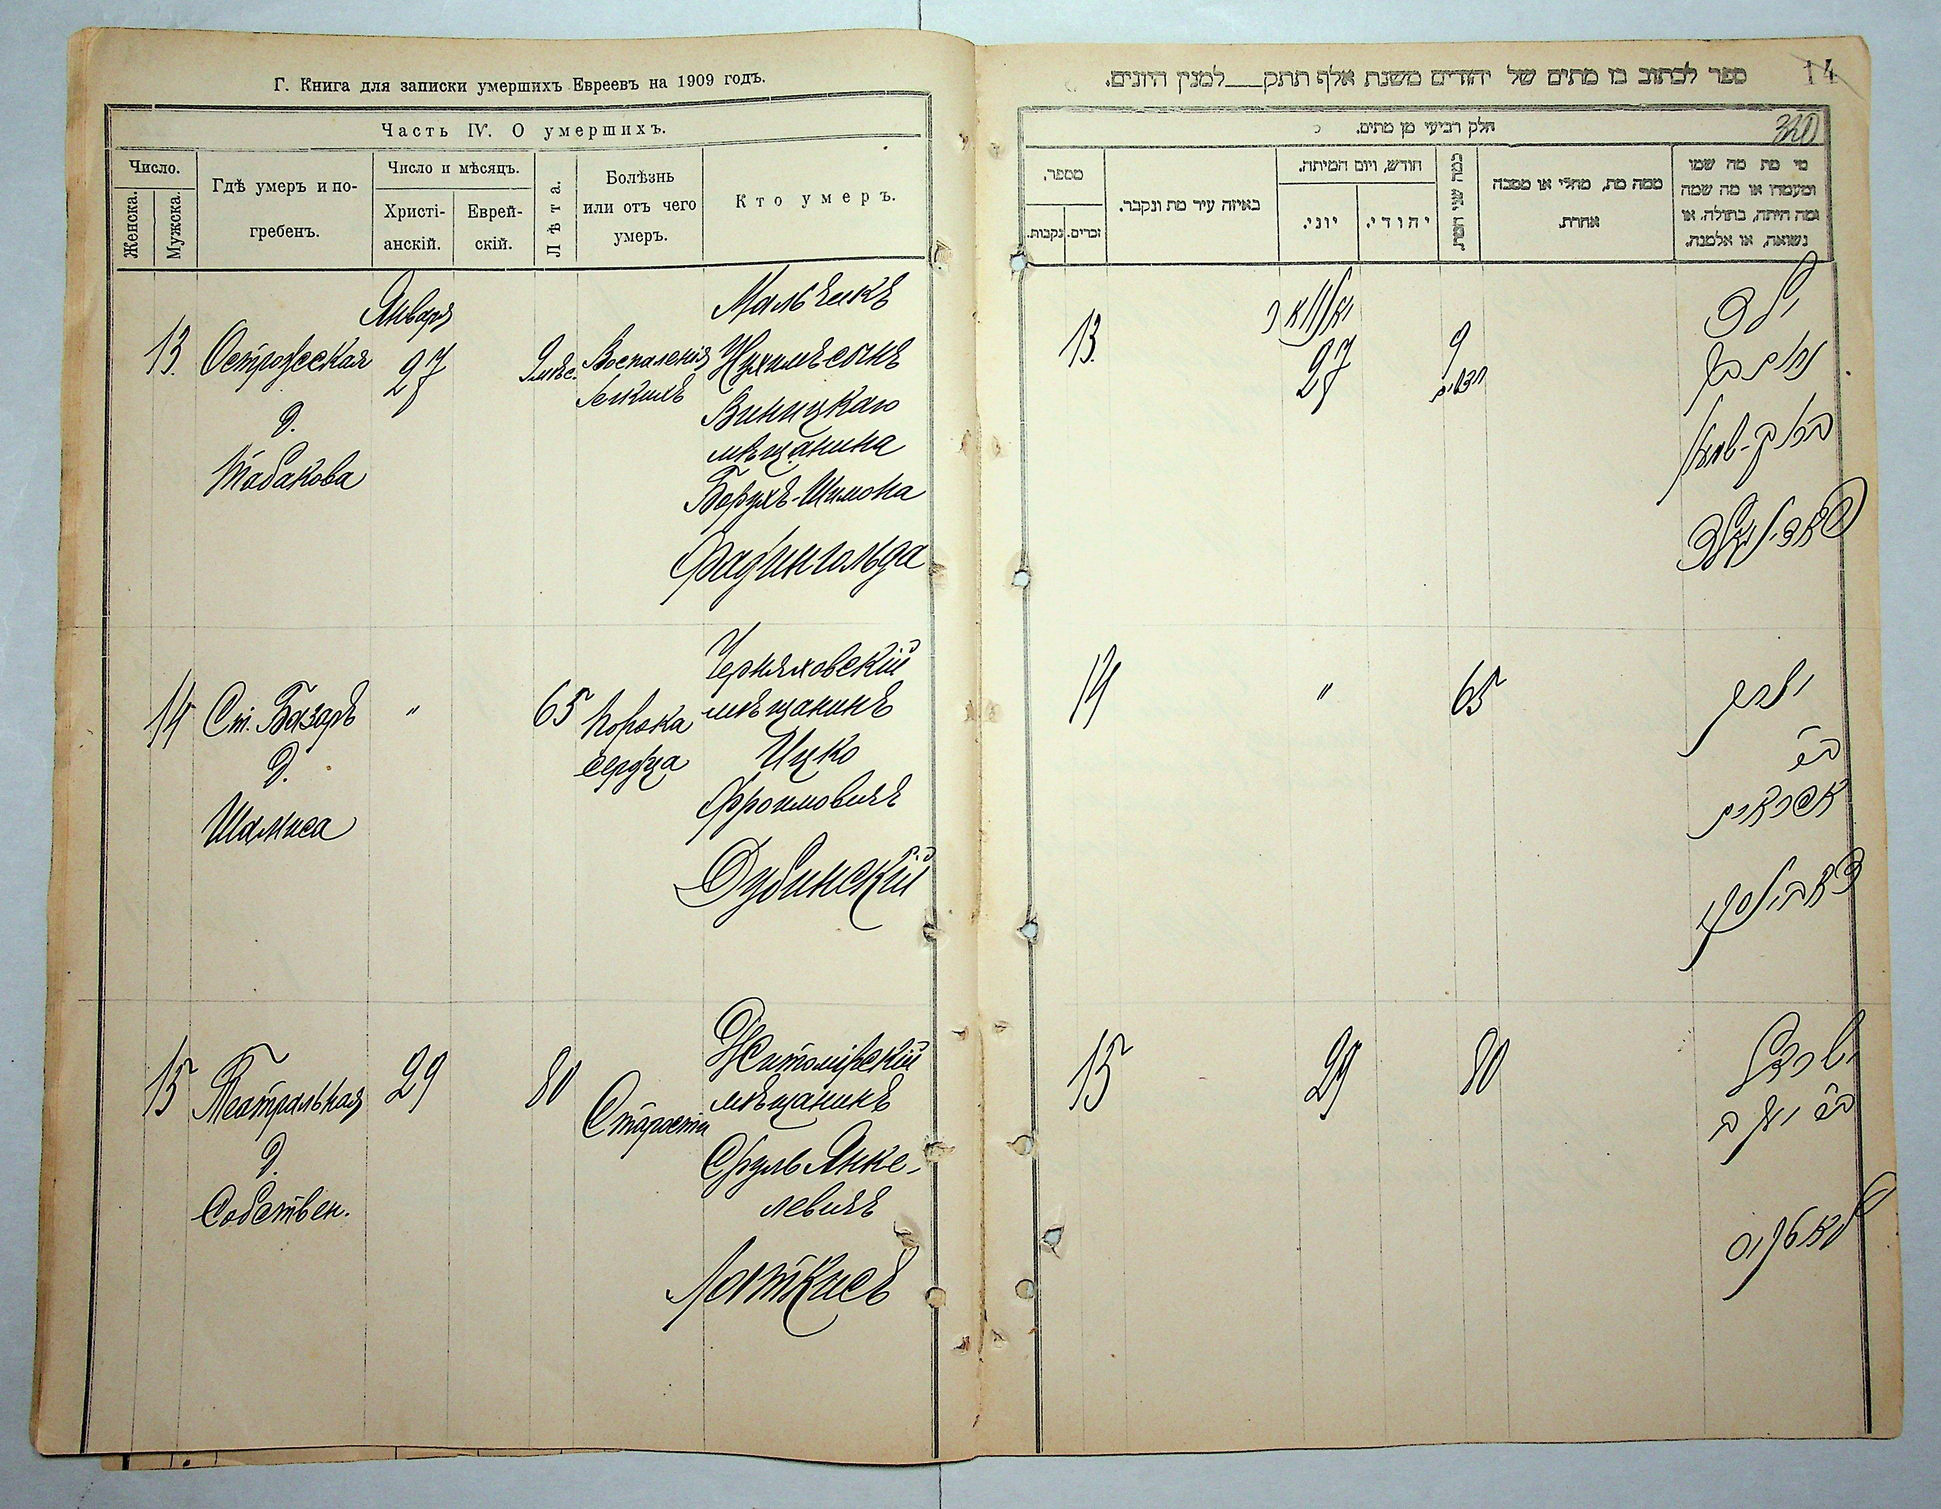 Г. Книга для записки умершихъ Евреевъ на 1909 годъ.
Часть IV. О умершихъ.
Число.
Женска.
Мужска.
Гдѣ умеръ и по-
гребенъ.
Число и мѣсяцъ.
Христі-
анскій.
Еврей-
скій.
Лѣта.
Болѣзнь
или отъ чего
умеръ.
Кто умеръ.
13.
Острожская
д.
Табакова
Января
27
9 мѣс.
Воспаленія
легкихъ
Мальчикъ
Нухимъ сынъ
Винницкаго
мѣщанина
Борухъ-Шимона
Файнгольда
14
Ст. Базаръ
д.
Шамиса
"
65
Порока
сердца
Черняховскій
мѣщанинъ
Ицко
Фроимовичъ
Дубинскій
15
Театральная
д.
Собствен.
29
80
Старости
Житомірскій
мѣщанинъ
Сруль Янке-
левичъ
Латкисъ
14
ספר לכתוב בו מתים של יהודים משנת אלף תתק___למנין היונים.
חלק רביעי מן מתים.
320
מספר.
נקבות.
זכרים.
באיזה עיר מת ונקבר.
חודש, ויום המיתה.
יוני.
יהודי.
כמה שני המת.
ממה מת, מחלי או מסבה
אחרת.
מי מת מה שמו
ומעמדו או מה שמה
ומה היתה, בתולה, או
נשואה, או אלמנה.
13.
יאנואר
27
9
חדשים
ילד
נחום בן
14
"
65
יצחק
ב"ר
אפרים
דובינסקי
15
29
80
ישראל
ב"ר יעקב
לאטקיס